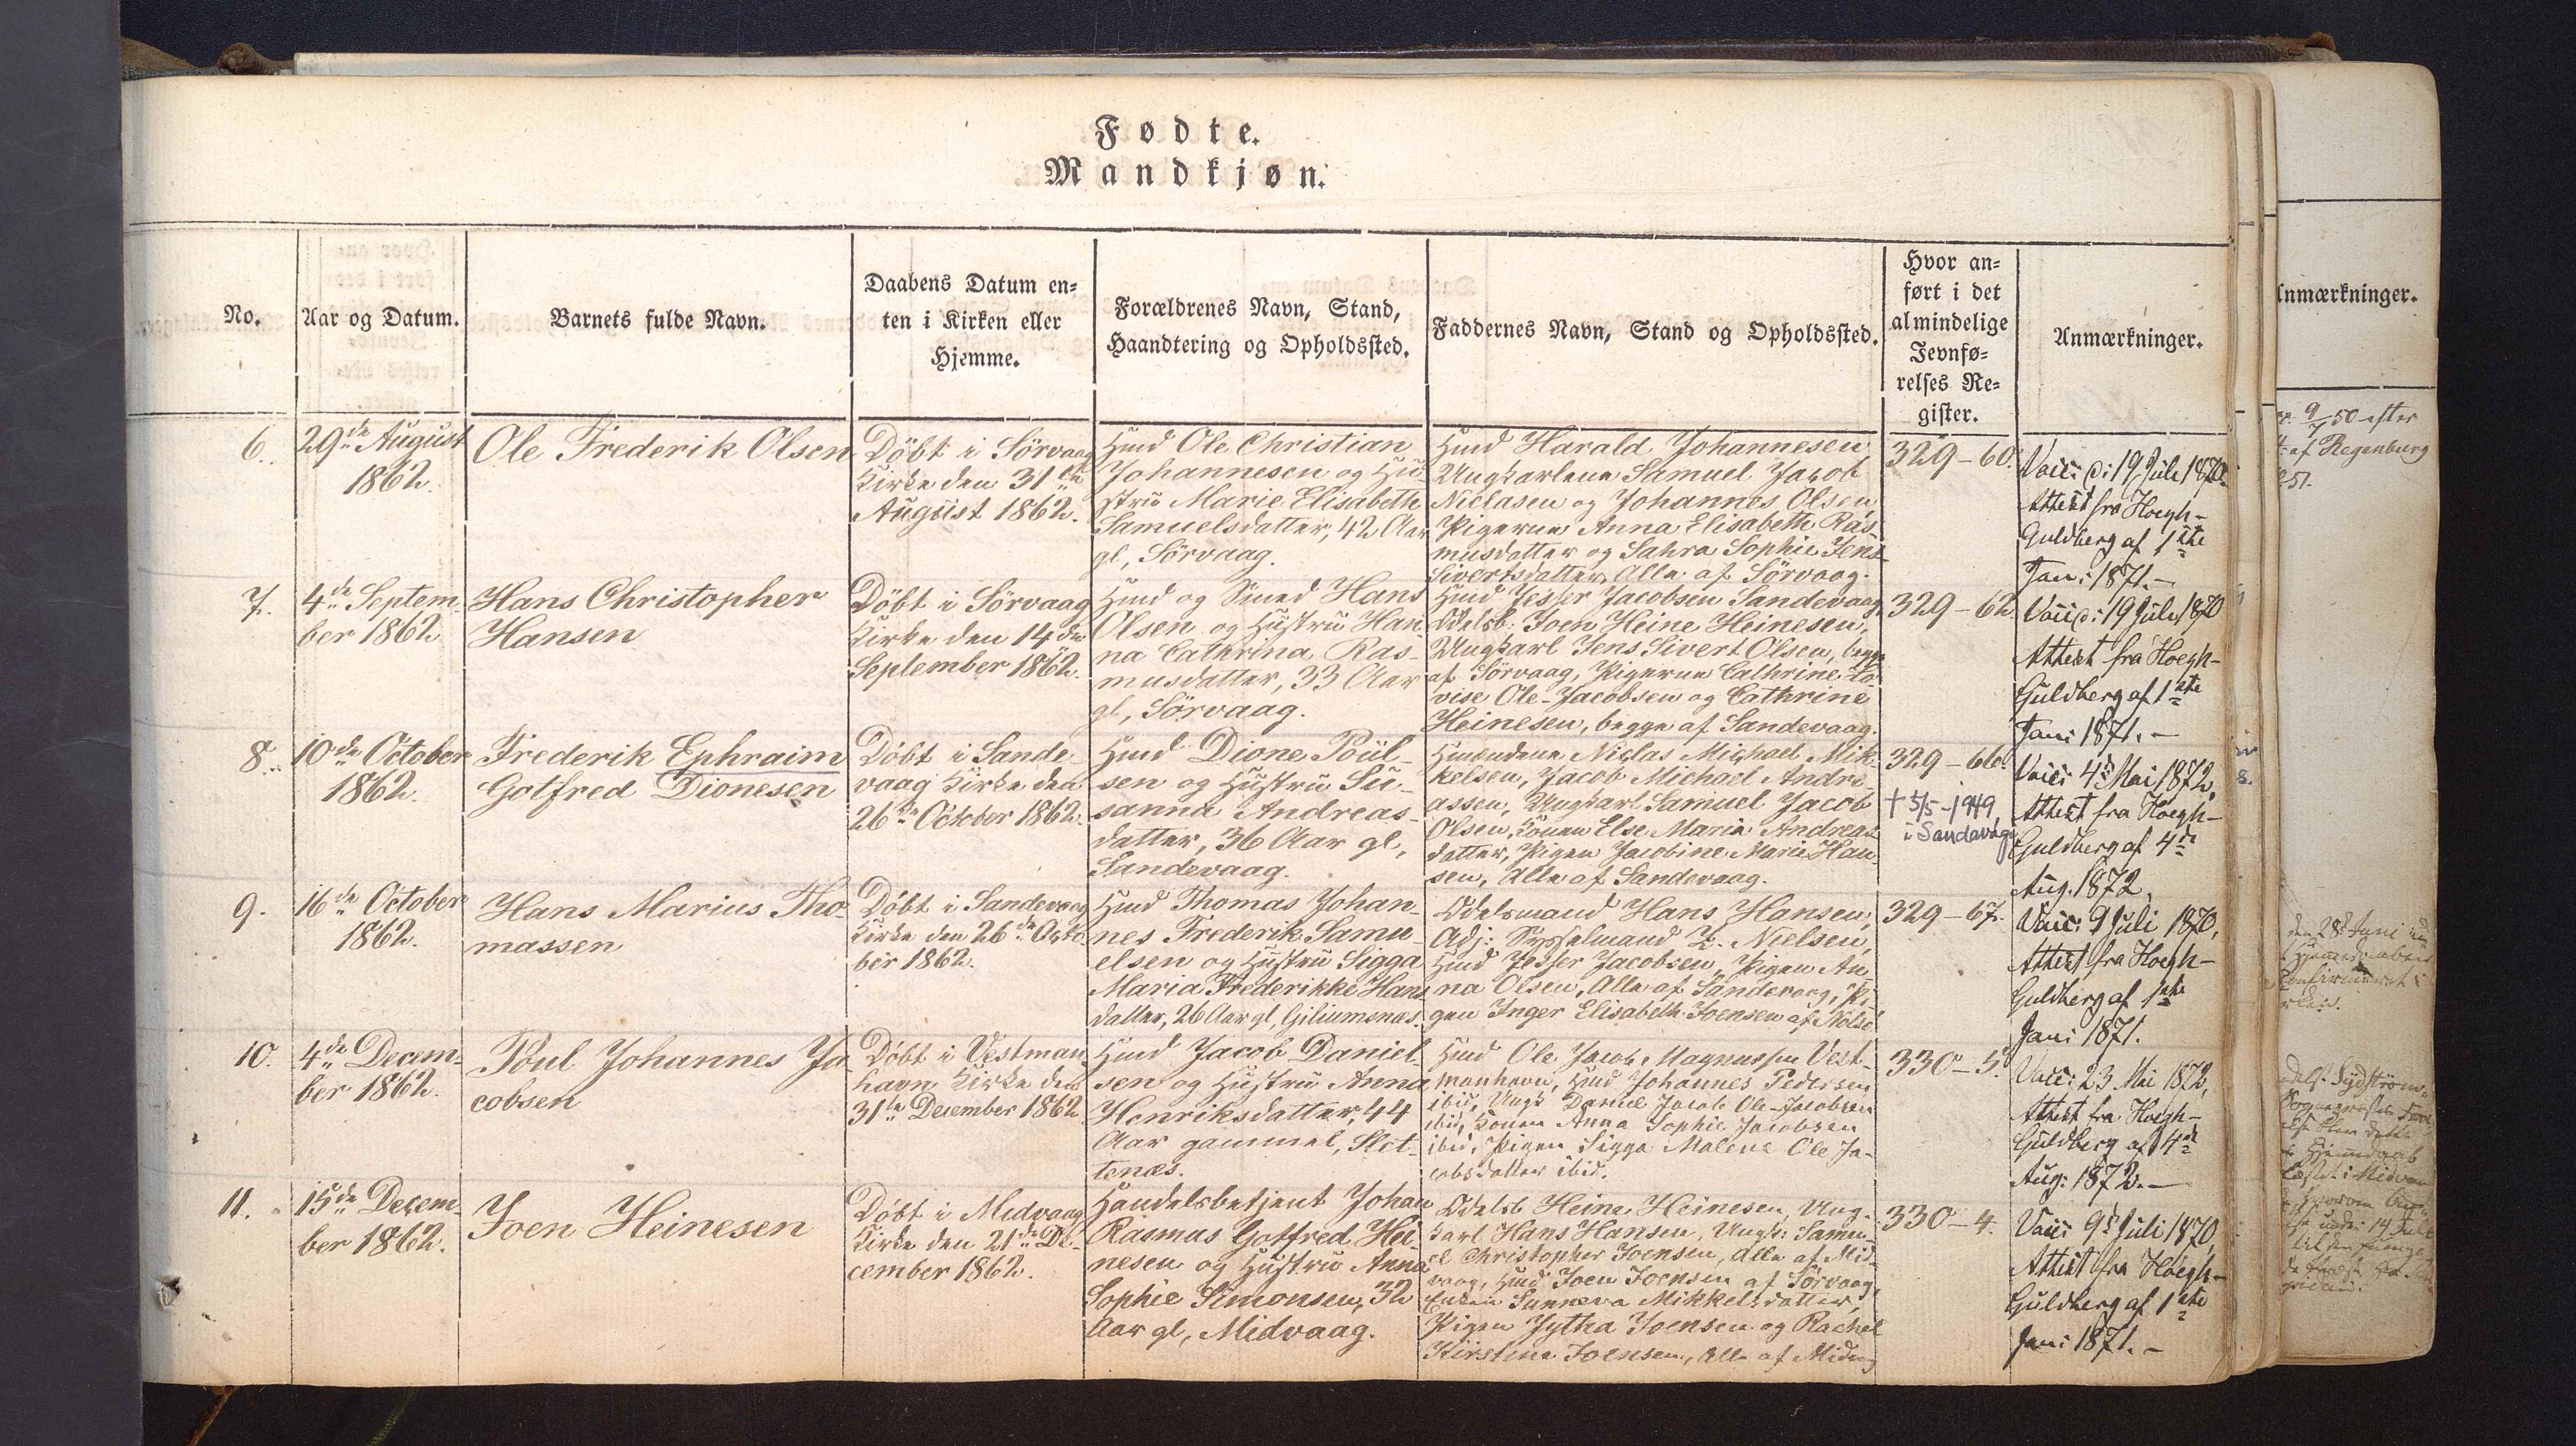 Fødte.
Mandkjøn.
No.
Aar og Datum.
Barnets fulde Navn.
Daabens Datum en-
ten i Kirken eller
Hjemme.
Forældrenes Navn, Stand,
Haandtering og Opholdssted.
Faddernes Navn, Stand og Opholdssted.
Hvor an-
ført i det
almindelige
Jevnfø-
relses Re-
gister.
Anmærkninger.
6.
29de August
1862.
Ole Frederik Olsen
Döbt i Sörvaag
Kirke den 31te
August 1862.
Hmd Ole Christian
Johannesen og Hu-
stru Marie Elisabeth
Samuelsdatter, 42 Aar
gl, Sörvaag.
Hmd Harald Johannesen
Ungkarlene Samuel Jacob
Niclasen og Johannes Olsen
Pigerne Anna Elisabeth Ras-
musdatter og Sahra Sophie Jens
Sivertsdatter, Alle af Sörvaag.
329-60.
Vacc: d: 19 Juli 1870
Attest fra Hoegh-
Guldberg af 1ste
Jan: 1871.-
7.
4de Septem-
ber 1862
Hans Christopher
Hansen
Döbt i Sörvaag
Kirke den 14de
September 1862.
Hmd og Smed Hans
Olsen og Hustru Han-
na Cathrina Ras-
musdatter, 33 Aar
gl, Sörvaag.
Hmd Jesser Jacobsen Sandevaag,
Odelsb. Joen Heine Heinesen,
Ungkarl Jens Sivert Olsen, begge
af Sörvaag, Pigerne Cathrine Lo-
vise Ole-Jacobsen og Cathrine
Heinesen, begge af Sandevaag.
329-62.
Vacc: 19 Juli 1870
Attest fra Hoegh-
Guldberg af 1ste
Jan: 1871.-
8.
10de October
1862.
Frederik Ephraim
Gotfred Dionesen
Döbt i Sande-
vaag Kirke den
26de October 1862.
Hmd Dione Poul-
sen og Hustru Su-
sanna Andreas-
datter, 36 Aar gl,
Sandevaag.
Hmændene Niclas Michael Mik-
kelsen, Jacob Michael Andre-
assen, Ungkarl Samuel Jacob
Olsen, Konen Else Maria Andreas-
datter, Pigen Jacobine Marie Han-
sen, Alle af Sandevaag.
329-66.
† 5/5-1949,
i Sandavági
Vacc: 4de Mai 1872,
Attest fra Hoegh-
Guldberg af 4de
Aug. 1872.
9.
16de October
1862.
Hans Marius Tho-
massen
Döbt i Sandevaag
Kirke den 26de Octo-
ber 1862.
Hmd Thomas Johan-
nes Frederik Samu-
elsen og Hustru Sigga
Maria Frederikke Hans-
datter, 26 Aar gl, Giliumsnæs.
Odelsmand Hans Hansen,
Adj: Sysselmand Z. Nielsen,
Hmd Jesser Jacobsen, Pigen An-
na Olsen, Alle af Sandevaag, Pi-
gen Inger Elisabeth Joensen af Nolsö
329-67.
Vacc: 9 Juli 1870,
Attest fra Hoegh-
Guldberg af 1ste
Jan: 1871.
10.
4de Decem-
ber 1862.
Poul Johannes Ja-
cobsen
Döbt i Vestman-
havn Kirke den
31te December 1862
Hmd Jacob Daniel-
sen og Hustru Anna
Henriksdatter, 44
Aar gammel, Slet-
tenæs.
Hmd Ole Jacob Magnussen Vest-
manhavn, Hmd Johannes Pedersen
ibid, Ungk Daniel Jacob Ole-Jacobsen
ibid, Konen Anna Sophie Jacobsen
ibid, Pigen Sigga Malene Ole Ja-
cobsdatter ibid.
330-5.
Vacc: 23 Mai 1872,
Attest fra Hoegh-
Guldberg af 4de
Aug: 1872.-
11.
15de Decem-
ber 1862.
Joen Heinesen
Döbt i Midvaag
Kirke den 21de De-
cember 1862.
Handelsbetjent Johan
Rasmus Gotfred Hei-
nesen og Hustru Anna
Sophie Simonsen, 32
Aar gl, Midvaag.
Odelsb Heine Heinesen, Ung-
karl Hans Hansen, Ungk: Samu-
el Christopher Joensen, Alle af Mid-
vaag, Hmd Joen Joensen af Sörvaag,
Enken Sunneva Mikkelsdatter,
Pigen Jytha Joensen og Rachel
Kirstine Joensen, Alle af Midvaag
330-4.
Vacc: 9de Juli 1870,
Attest fra Hoegh-
Guldberg af 1ste
Jan: 1871.-
Anmærkninger.
9/7 50 efter
af Regenburg
51.
den 28de Juni
14 Juli